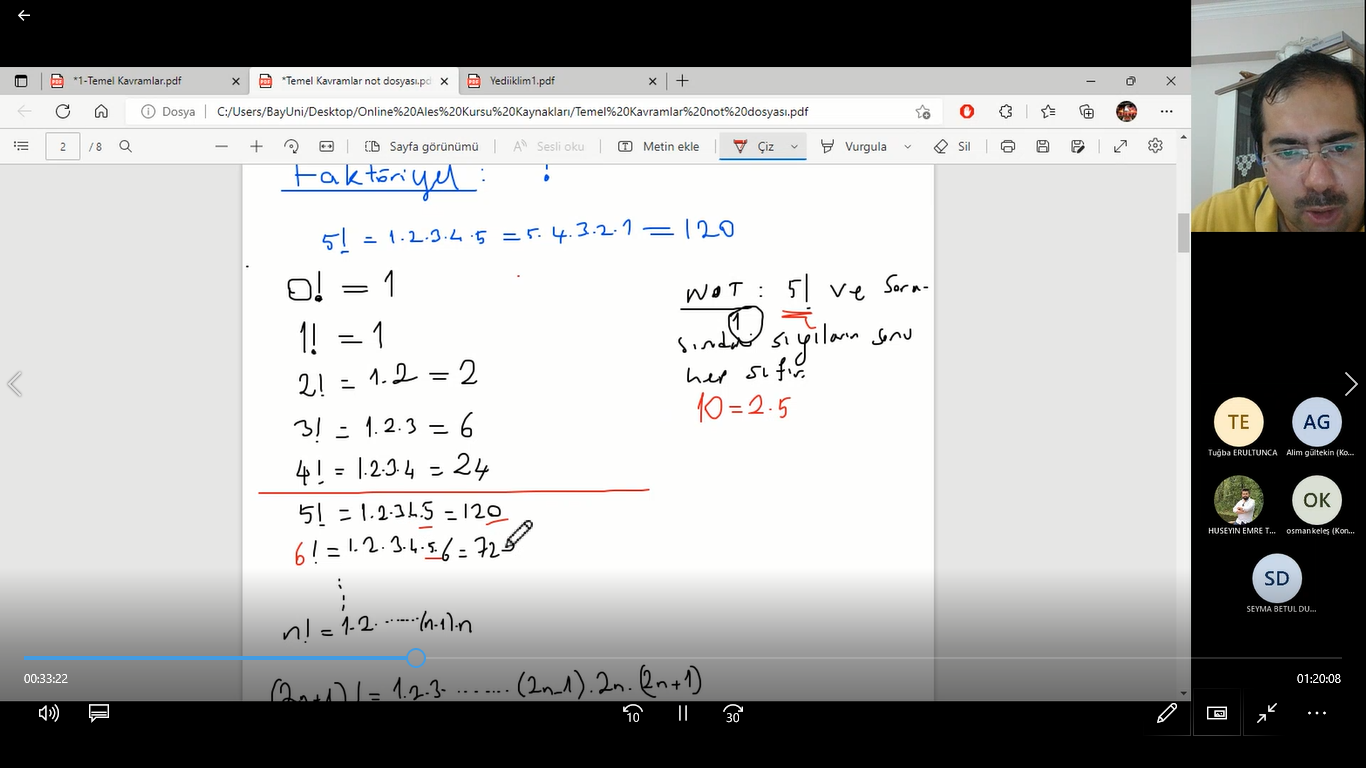 *1-Temel Kavramlar.pdf
*Temel Kavramlar not dosyası.pd
Yediiklim1.pdf
Dosya
C:/Users/BayUni/Desktop/Online%20Ales%20Kursu%20Kaynakları/Temel%20Kavramlar%20not%20dosyası.pdf
2 / 8
Sayfa görünümü
Sesli oku
Metin ekle
Çiz
Vurgula
Sil
Faktöriyel : !
5! = 1.2.3.4.5 = 5.4.3.2.1 = 120
0! = 1
1! = 1
2! = 1.2 = 2
3! = 1.2.3 = 6
4! = 1.2.3.4 = 24
5! = 1.2.3.4.5 = 120
6! = 1.2.3.4.5.6 = 72
n! = 1.2. ...... (n-1).n
(2n+1)! = 1.2.3. ....... (2n-1).2n.(2n+1)
NOT : 5! ve sonra-
1
sayıların sonu
hep sıfır.
10 = 2.5
TE
AG
Tuğba ERULTUNCA
Alim gültekin (Ko...
OK
HUSEYIN EMRE T...
osman keleş (Kon...
SD
SEYMA BETUL DU...
00:33:22
01:20:08
10
30